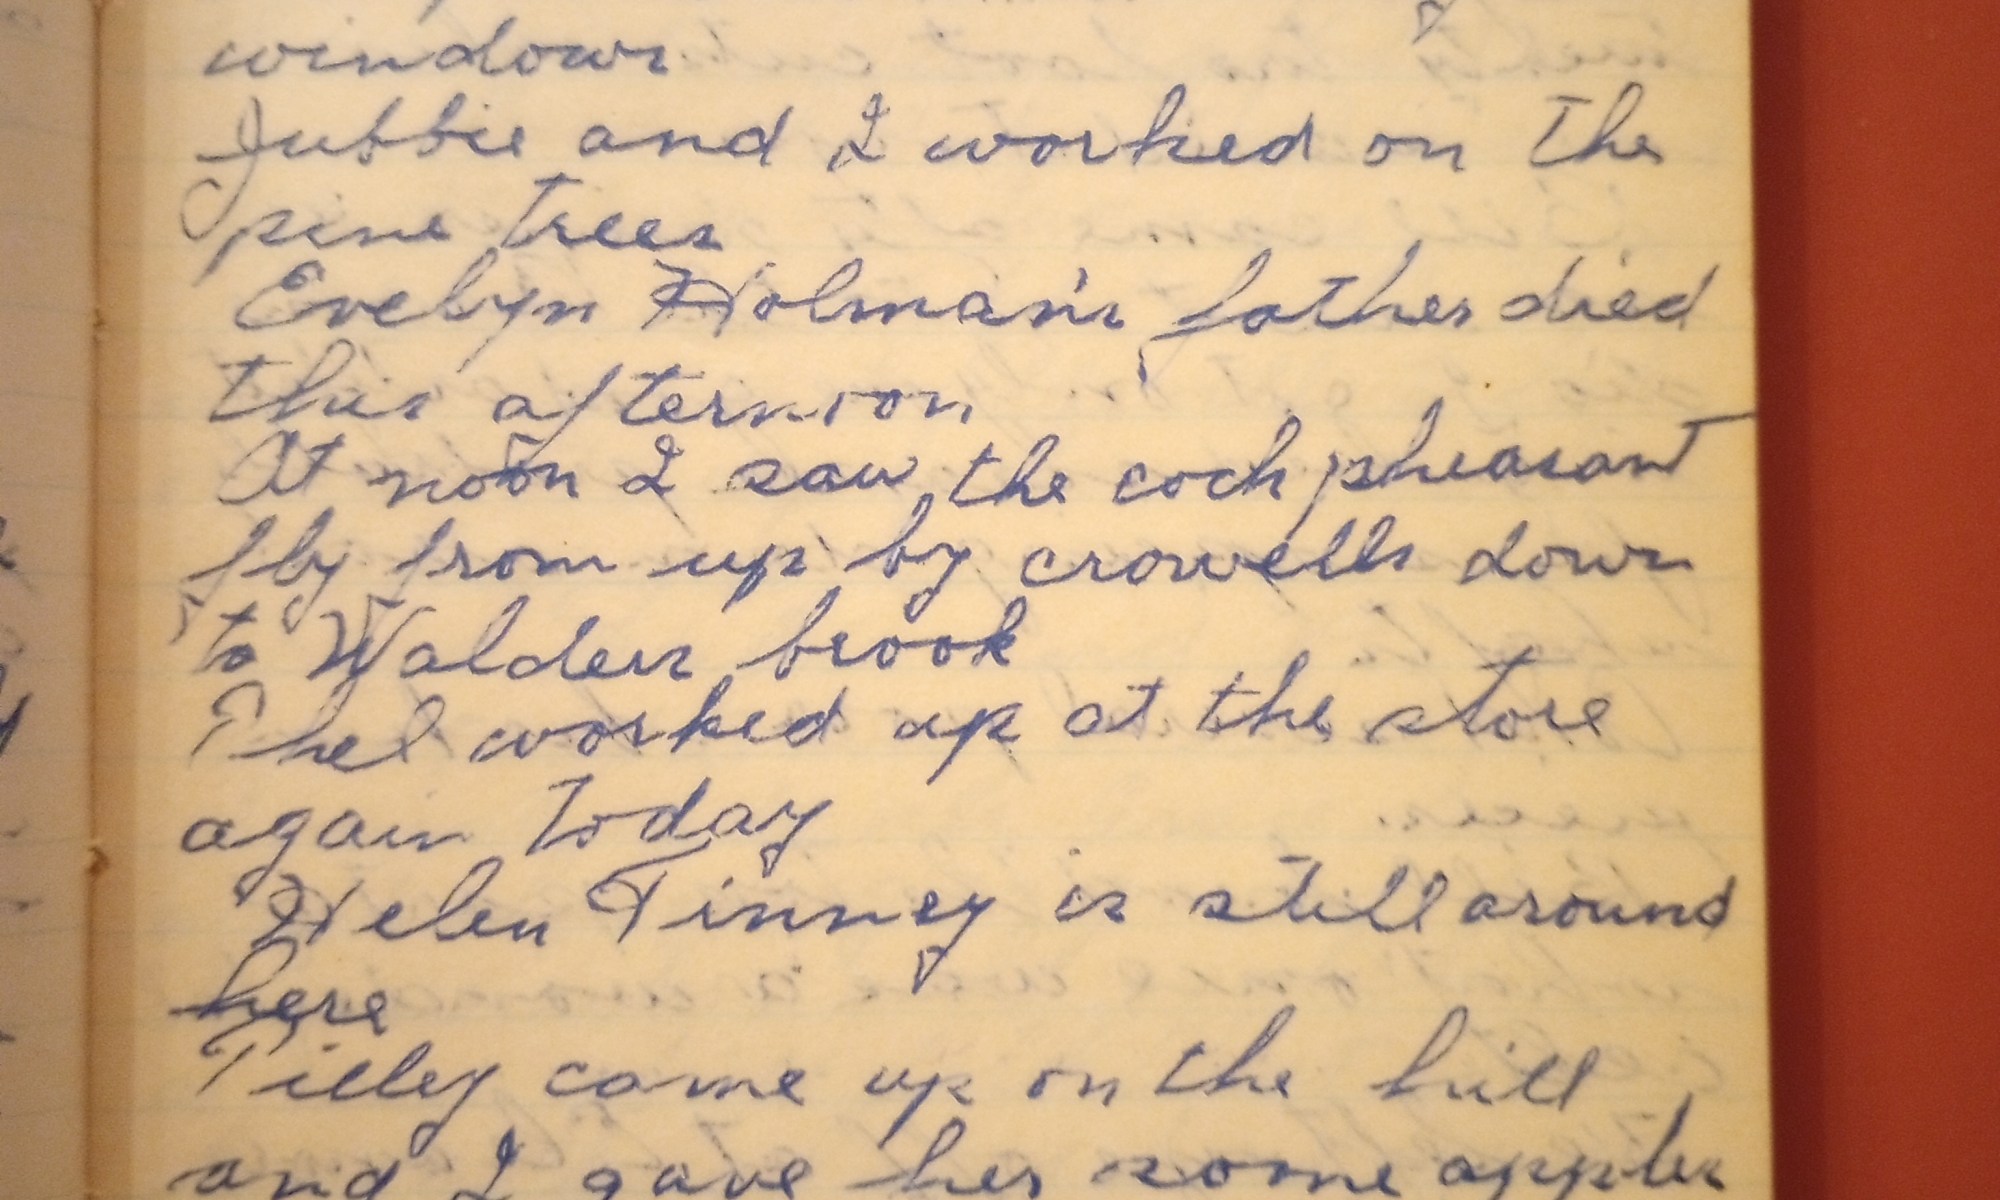 windows
Jubbie and I worked on the
pine trees
Evelyn Holman's father died
this afternoon
At noon I saw the cock pheasant
fly from up by crowells down
to Walden brook
Thel worked up at the store
again today
Helen Tinney is still around
here
Tilley came up on the hill
and I gave her some apples